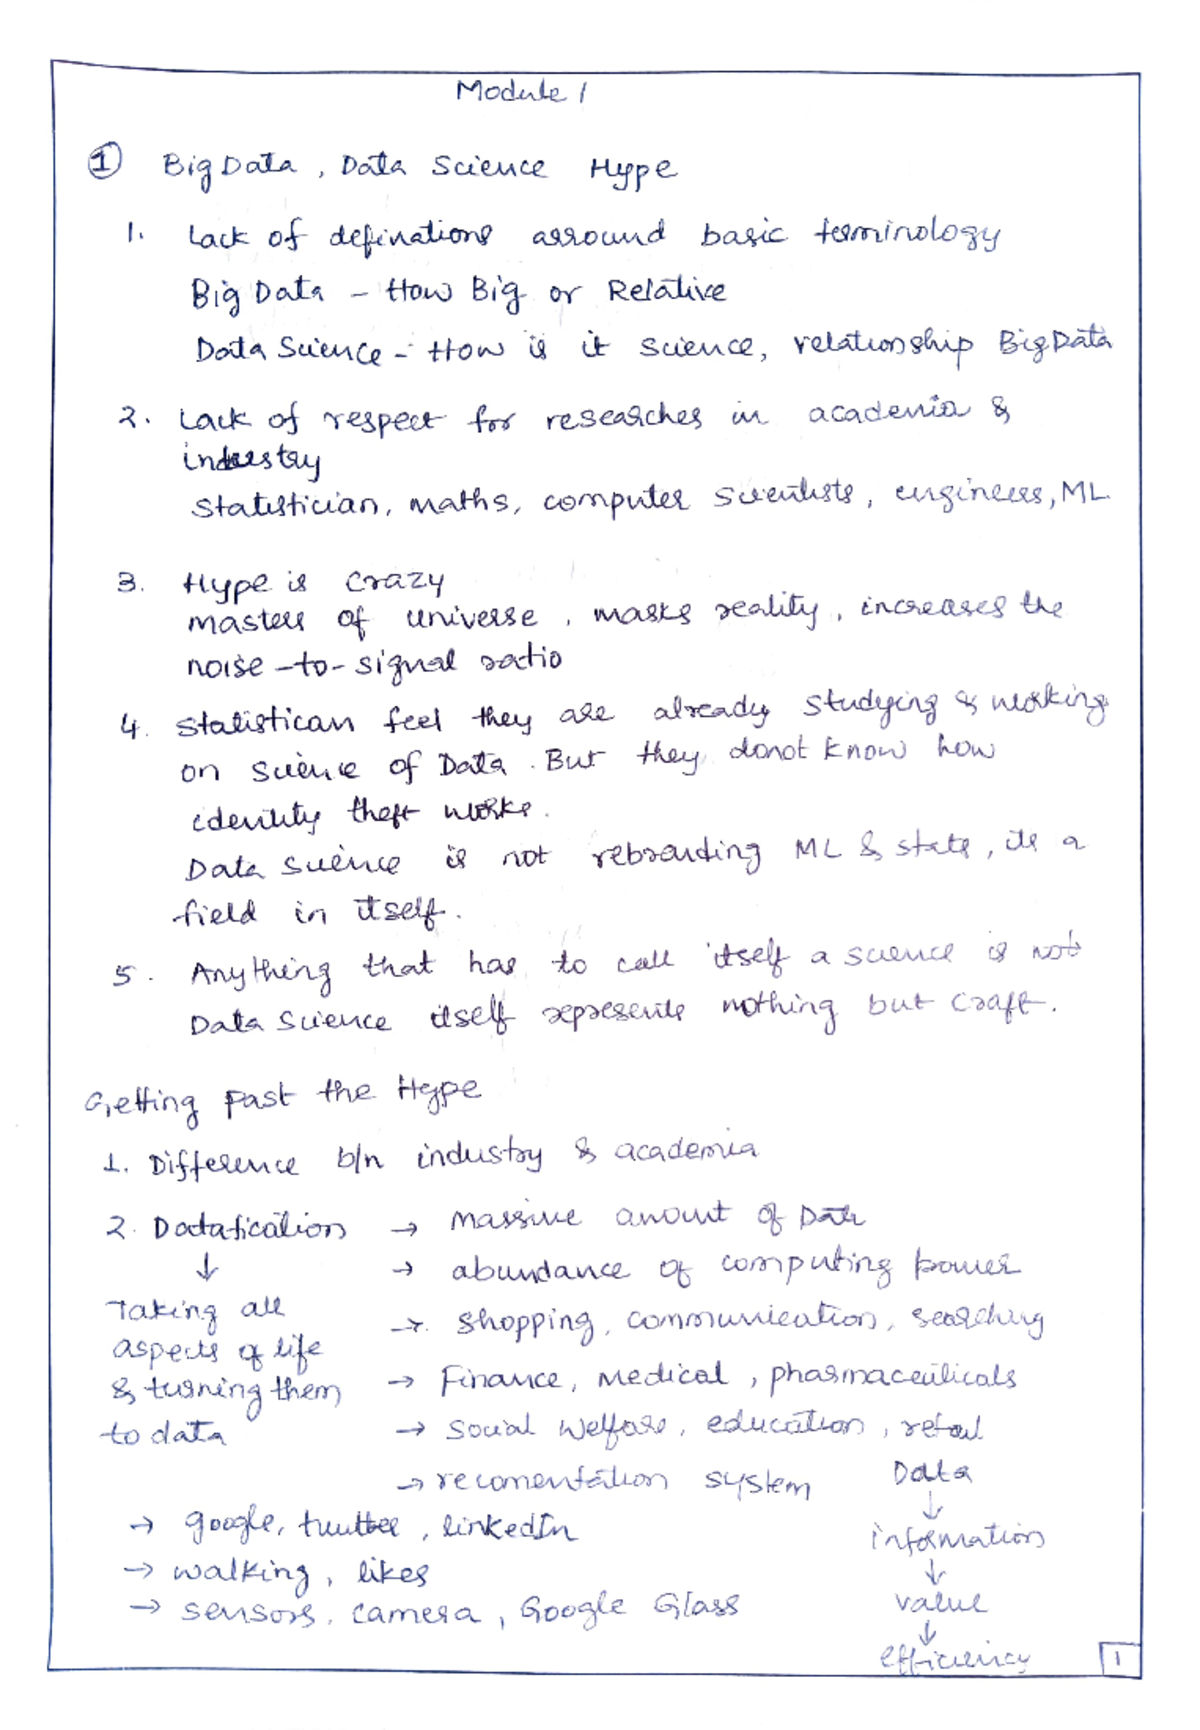 Module 1
① Big Data, Data Science Hype
1. Lack of definations arround basic terminology
Big Data - How Big or Relative
Data Science - How is it science, relationship Big Data
2. Lack of respect for researches in academia &
industry
Statistician, maths, computer scientists, engineers, ML
3. Hype is crazy
masters of universe, masks reality, increases the
noise-to-signal ratio
4. Statistican feel they are already studying & working
on science of Data. But they donot know how
identity theft works.
Data science is not rebranding ML & stats, its a
field in itself.
5. Anything that has to call itself a science is not
Data Science itself represents nothing but craft.
Getting Past the Hype
1. Difference b/n industry & academia
2. Datafication → Massive amount of Data
↓ → abundance of computing power
Taking all → shopping, communication, searching
aspects of life
& turning them → Finance, medical, pharmaceuticals
to data → social welfare, education, retail
→ recomentation system Data
↓
→ google, twitter, linkedIn information
→ walking, likes ↓
→ sensors, camera, Google Glass value
↓
efficiency 1